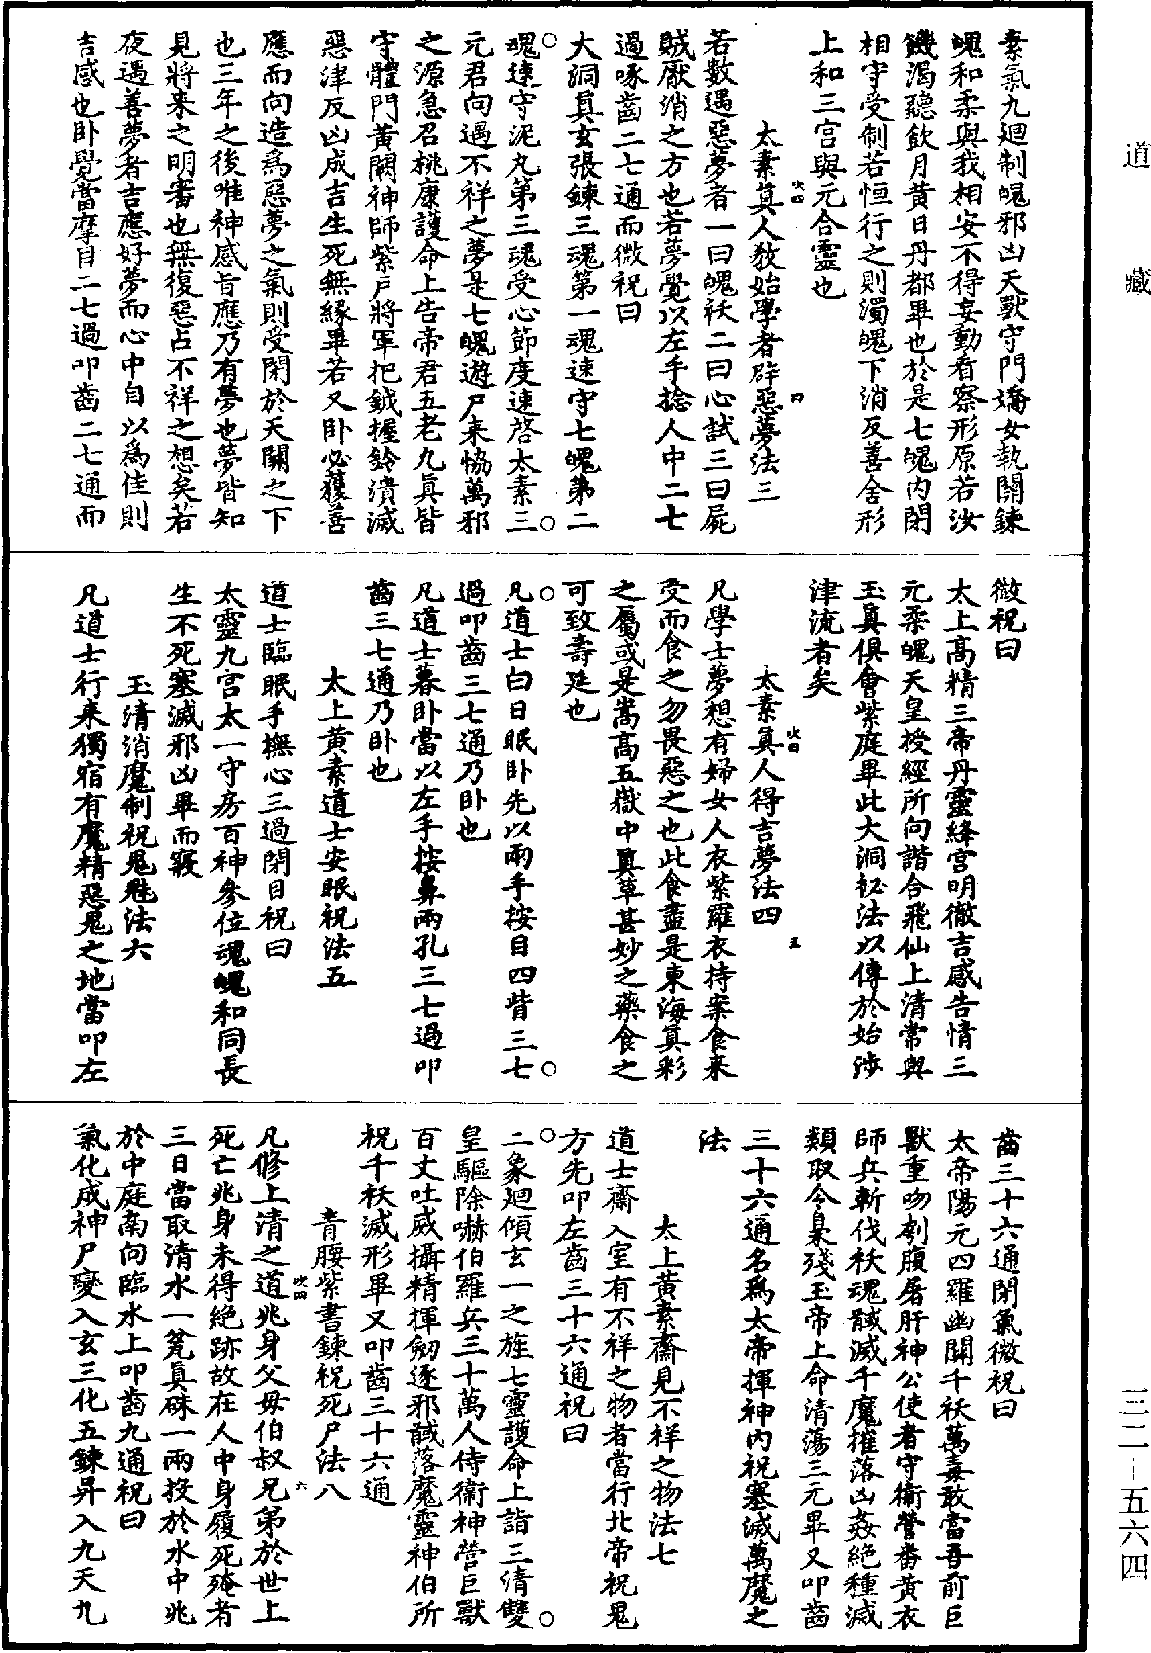 道藏
素氣九迴制魄邪凶天獸守門嬌女執關鍊
魄和柔與我相安不得妄動看察形原若汝
饑渴聽飲月黃日丹都畢也於是七魄內閉
相守受制若恒行之則濁魄下消反善舍形
上和三宮與元合靈也
太素真人教始學者辟惡夢法三
若數遇惡夢者一曰魄祅二曰心試三曰屍
賊厭消之方也若夢覺以左手捻人中二七
過啄齒二七通而微祝曰
大洞真玄張鍊三魂第一魂速守七魄第二
魂速守泥丸第三魂受心節度速啓太素三
元君向遇不祥之夢是七魄遊尸來恊萬邪
之源急召桃康護命上告帝君五老九真皆
守體門黃闕神師紫戶將軍把鉞握鈴潰滅
惡津反凶成吉生死無緣畢若又卧必獲善
應而向造爲惡夢之氣則受閉於天關之下
也三年之後唯神感旨應乃有夢也夢皆知
見將來之明審也無復惡占不祥之想矣若
夜遇善夢者吉應好夢而心中自以爲佳則
吉感也卧覺當摩目二七過叩齒二七通而
微祝曰
太上高精三帝丹靈絳宮明徹吉感告情三
元柔魄天皇授經所向諧合飛仙上清常與
玉真俱會紫庭畢此大洞祕法以傳於始涉
津流者矣
太素真人得吉夢法四
凡學士夢想有婦女人衣紫羅衣持案食來
受而食之勿畏惡之也此食盡是東海真彩
之屬或是嵩高五嶽中真草甚妙之藥食之
可致壽延也
凡道士白日眠卧先以兩手按目四眥三七
過叩齒三七通乃卧也
凡道士暮卧當以左手按鼻兩孔三七過叩
齒三七通乃卧也
太上黃素道士安眠祝法五
道士臨眠手撫心三過閉目祝曰
太靈九宮太一守房百神參位魂魄和同長
生不死塞滅邪凶畢而寢
玉清消魔制祝鬼魅法六
凡道士行來獨宿有魔精惡鬼之地當叩左
齒三十六通閉氣微祝曰
太帝陽元四羅幽關千祅萬毒敢當吾前巨
獸重吻刳腹屠肝神公使者守衛營番黃衣
師兵斬伐祅魂馘滅千魔摧落凶姦絕種滅
類取令梟殘玉帝上命清蕩三元畢又叩齒
三十六通名爲太帝揮神內祝塞滅萬魔之
法
太上黃素齋見不祥之物法七
道士齋入室有不祥之物者當行北帝祝鬼
方先叩左齒三十六通祝曰
二象迴傾玄一之旌七靈護命上詣三清雙
皇驅除嚇伯羅兵三十萬人侍衛神營巨獸
百丈吐威攝精揮劒逐邪馘落魔靈神伯所
祝千祅滅形畢又叩齒三十六通
青腰紫書鍊祝死尸法八
凡修上清之道兆身父母伯叔兄弟於世上
死亡兆身未得絕跡故在人中身履死殗者
三日當取清水一瓮真硃一兩投於水中兆
於中庭南向臨水上叩齒九通祝曰
氣化成神尸變入玄三化五鍊昇入九天九
三二－五六四